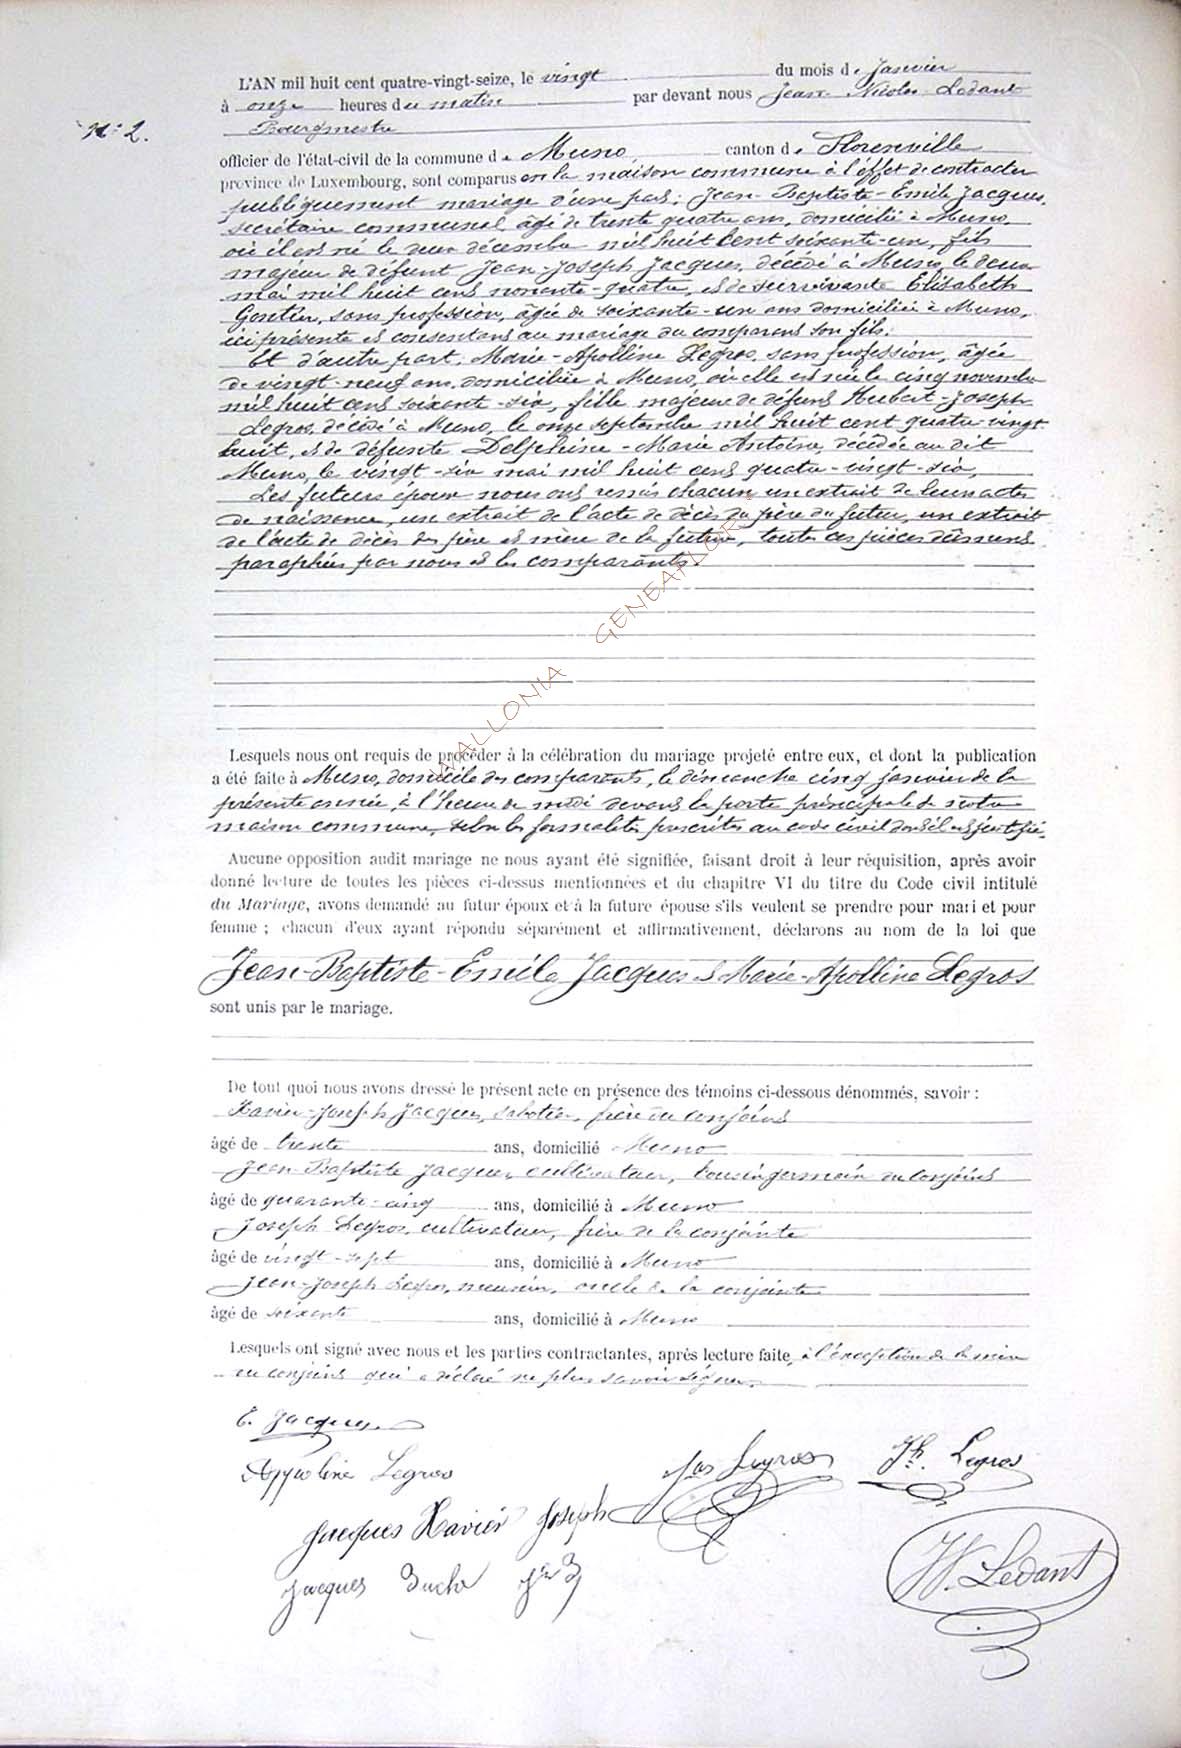 N° 2.
L'AN mil huit cent quatre-vingt-seize, le vingt du mois de Janvier
à onze heures du matin par devant nous Jean Nicolas Ledant
Bourgmestre
officier de l'état-civil de la commune de Muno, canton de Florenville
province de Luxembourg, sont comparus en la maison commune à l'effet de contracter
publiquement mariage d'une part; Jean-Baptiste-Emile Jacques,
secrétaire communal, âgé de trente quatre ans, domicilié à Muno,
où il est né le deux décembre mil huit cent soixante-un, fils
majeur de défunt Jean-Joseph Jacques, décédé à Muno, le deux
mai mil huit cent nonante-quatre, et de survivante Elisabeth
Gontier, sans profession, âgée de soixante-un ans domiciliée à Muno,
ici présente et consentant au mariage du comparant son fils.
Et d'autre part, Marie-Apolline Legros, sans profession, âgée
de vingt-neuf ans, domiciliée à Muno, où elle est née le cinq novembre
mil huit cent soixante-six, fille majeure de défunt Hubert-Joseph
Legros, décédé à Muno, le onze septembre mil huit cent quatre-vingt
huit, et de défunte Delphine-Marie Antoine, décédée au dit
Muno, le vingt-six mai mil huit cent quatre-vingt-six,
Les futurs époux nous ont remis chacun un extrait de leur acte
de naissance, un extrait de l'acte de décès du père du futur, un extrait
de l'acte de décès des père et mère de la future, toutes ces pièces dûment
paraphées par nous et les comparants.
WALLONIA GENEAFLOR
Lesquels nous ont requis de procéder à la célébration du mariage projeté entre eux, et dont la publication
a été faite à Muno, domicile des comparants, le dimanche cinq janvier de la
présente année, à l'heure de midi devant la porte principale de notre
maison commune, selon les formalités prescrites au code civil dont il est justifié.
Aucune opposition audit mariage ne nous ayant été signifiée, faisant droit à leur réquisition, après avoir
donné lecture de toutes les pièces ci-dessus mentionnées et du chapitre VI du titre du Code civil intitulé
du Mariage, avons demandé au futur époux et à la future épouse s'ils veulent se prendre pour mari et pour
femme ; chacun d'eux ayant répondu séparément et affirmativement, déclarons au nom de la loi que
Jean-Baptiste-Emile Jacques et Marie-Apolline Legros
sont unis par le mariage.
De tout quoi nous avons dressé le présent acte en présence des témoins ci-dessous dénommés, savoir :
Xavier-Joseph Jacques, sabotier, frère du conjoint
âgé de trente ans, domicilié Muno
Jean-Baptiste Jacques, cultivateur, cousin germain du conjoint
âgé de quarante-cinq ans, domicilié à Muno
Joseph Legros, cultivateur, frère de la conjointe
âgé de vingt-sept ans, domicilié à Muno
Jean-Joseph Legros, meunier, oncle de la conjointe
âgé de soixante ans, domicilié à Muno
Lesquels ont signé avec nous et les parties contractantes, après lecture faite, à l'exception de la mère
du conjoint qui a déclaré ne plus savoir signer.
E. Jacques
Appoline Legros
Jos Legros
Jh. Legros
Jacques Xavier Joseph
Jacques
N. Ledant